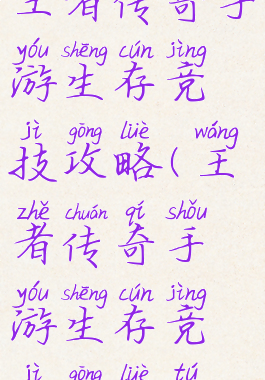 王者传奇手
yóu shēng cún jìng
游生存竞
jì gōng lüè wáng
技攻略(王
zhě chuán qí shǒu
者传奇手
yóu shēng cún jìng
游生存竞
jì gōng lüè tú